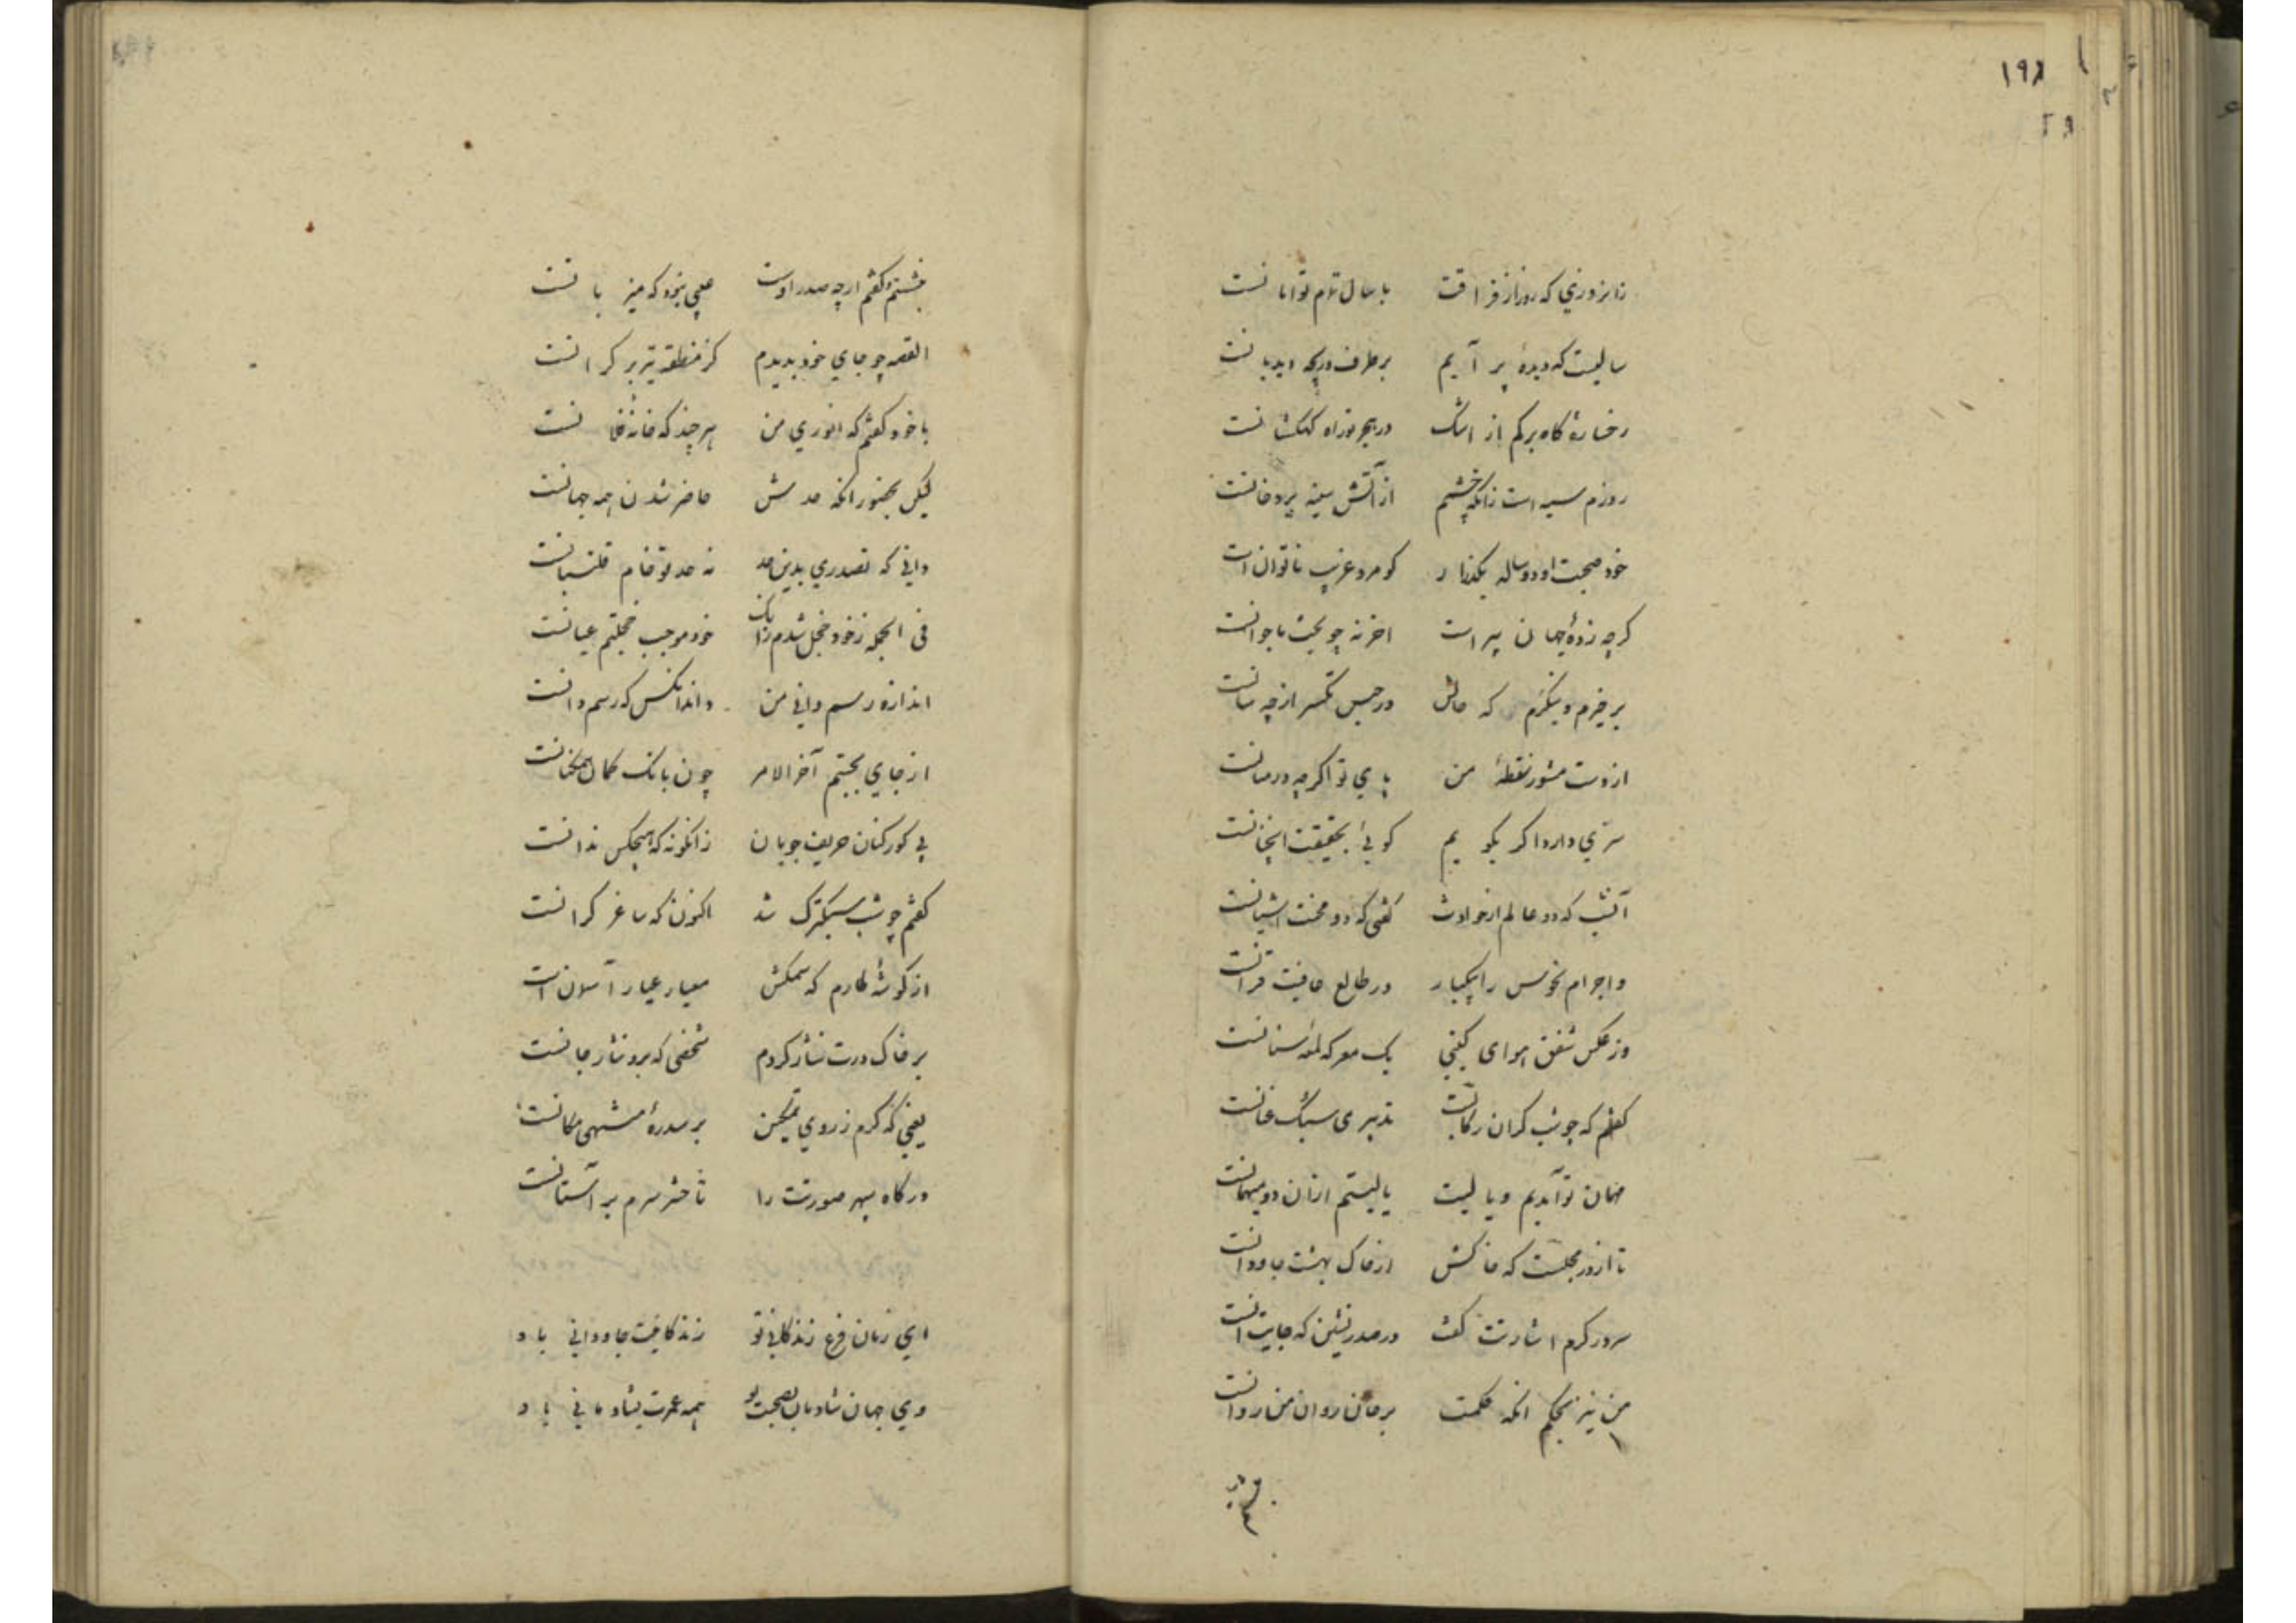 ۱۹۸
زانروزی که روز از فراقت با سال تمام توامانست
سالیست که دیده پر آبم بر طرف دریچه دیدبانست
رخساره کاه برکم از اشک در هجر تو راه کهکشانست
روزم سیه است زانکه چشم از آتش سینه پر دخانست
خود صحبت او دو ساله بگذار کو مرد غریب ناتوان است
گرچه زده جهان پیر است اخر نه چو بخت ما جوانست
برخیزم و بنگرم که حالش در حبس تکسر از چه سانست
از دست مشو ز نقطه من پای تو اگرچه در میانست
سری دارد اگر بگویم گویی بحقیقت اینچنانست
آنشب که دو عالم از حوادث گفتی که دو محنت اشیانست
واجرام نحوس را بیکبار در طالع عافیت قرانست
وز عکس شفق هوای گیتی یک معرکه لمعه سنانست
گفتم که چو شب گران رکابست تدبیری سبک عنانست
مهمان تو آمدیم و یالیت یالیستم ازان دو میهمانست
تا از در مجلست که خاکش از خاک بهشت جاودانست
سرور کرم اشارتت گفت در صدر نشین که جایت انست
من نیز بحکم آنکه حکمت بر جان روان من روانست
بنشستم و گفتم ارچه صدر اوست عیبی نبود که میزبانست
القصه چو جای خود بدیدم کز منطقه تیر بر کرانست
با خود گفتم که انوری من هرچند که خانه فلانست
لیکن بحضور آنکه حدش حاضر شدن همه جهانست
دانی که تصدری بدین حد نه حد تو خام قلتبانست
فی الجمله ز خود خجل شدم زانک خود موجب خجلتم عیانست
اندازه رسم دانی من داند انکس که رسم دانست
از جای بجستم آخر الامر چون بانک کمان
پی کور کنان حریف جویان زانگونه که هیچکس ندانست
گفتم چو شب سبکترک شد اکنون که ساغر گرانست
از گوشه طارم که سمکش معیار عیار آسمان است
بر خاک درت نثار کردم شخصی که برو نثار جانست
یعنی که کرم ز روی تمکین بر سدره منتهی مکانست
درگاه سپهر صورتت را تا حشر سرم بر آستانست
ای زمان فرع زندگانی تو زندگانیت جاودانی باد
وی جهان شادمان بصحبت تو همه عمرت بشادمانی باد